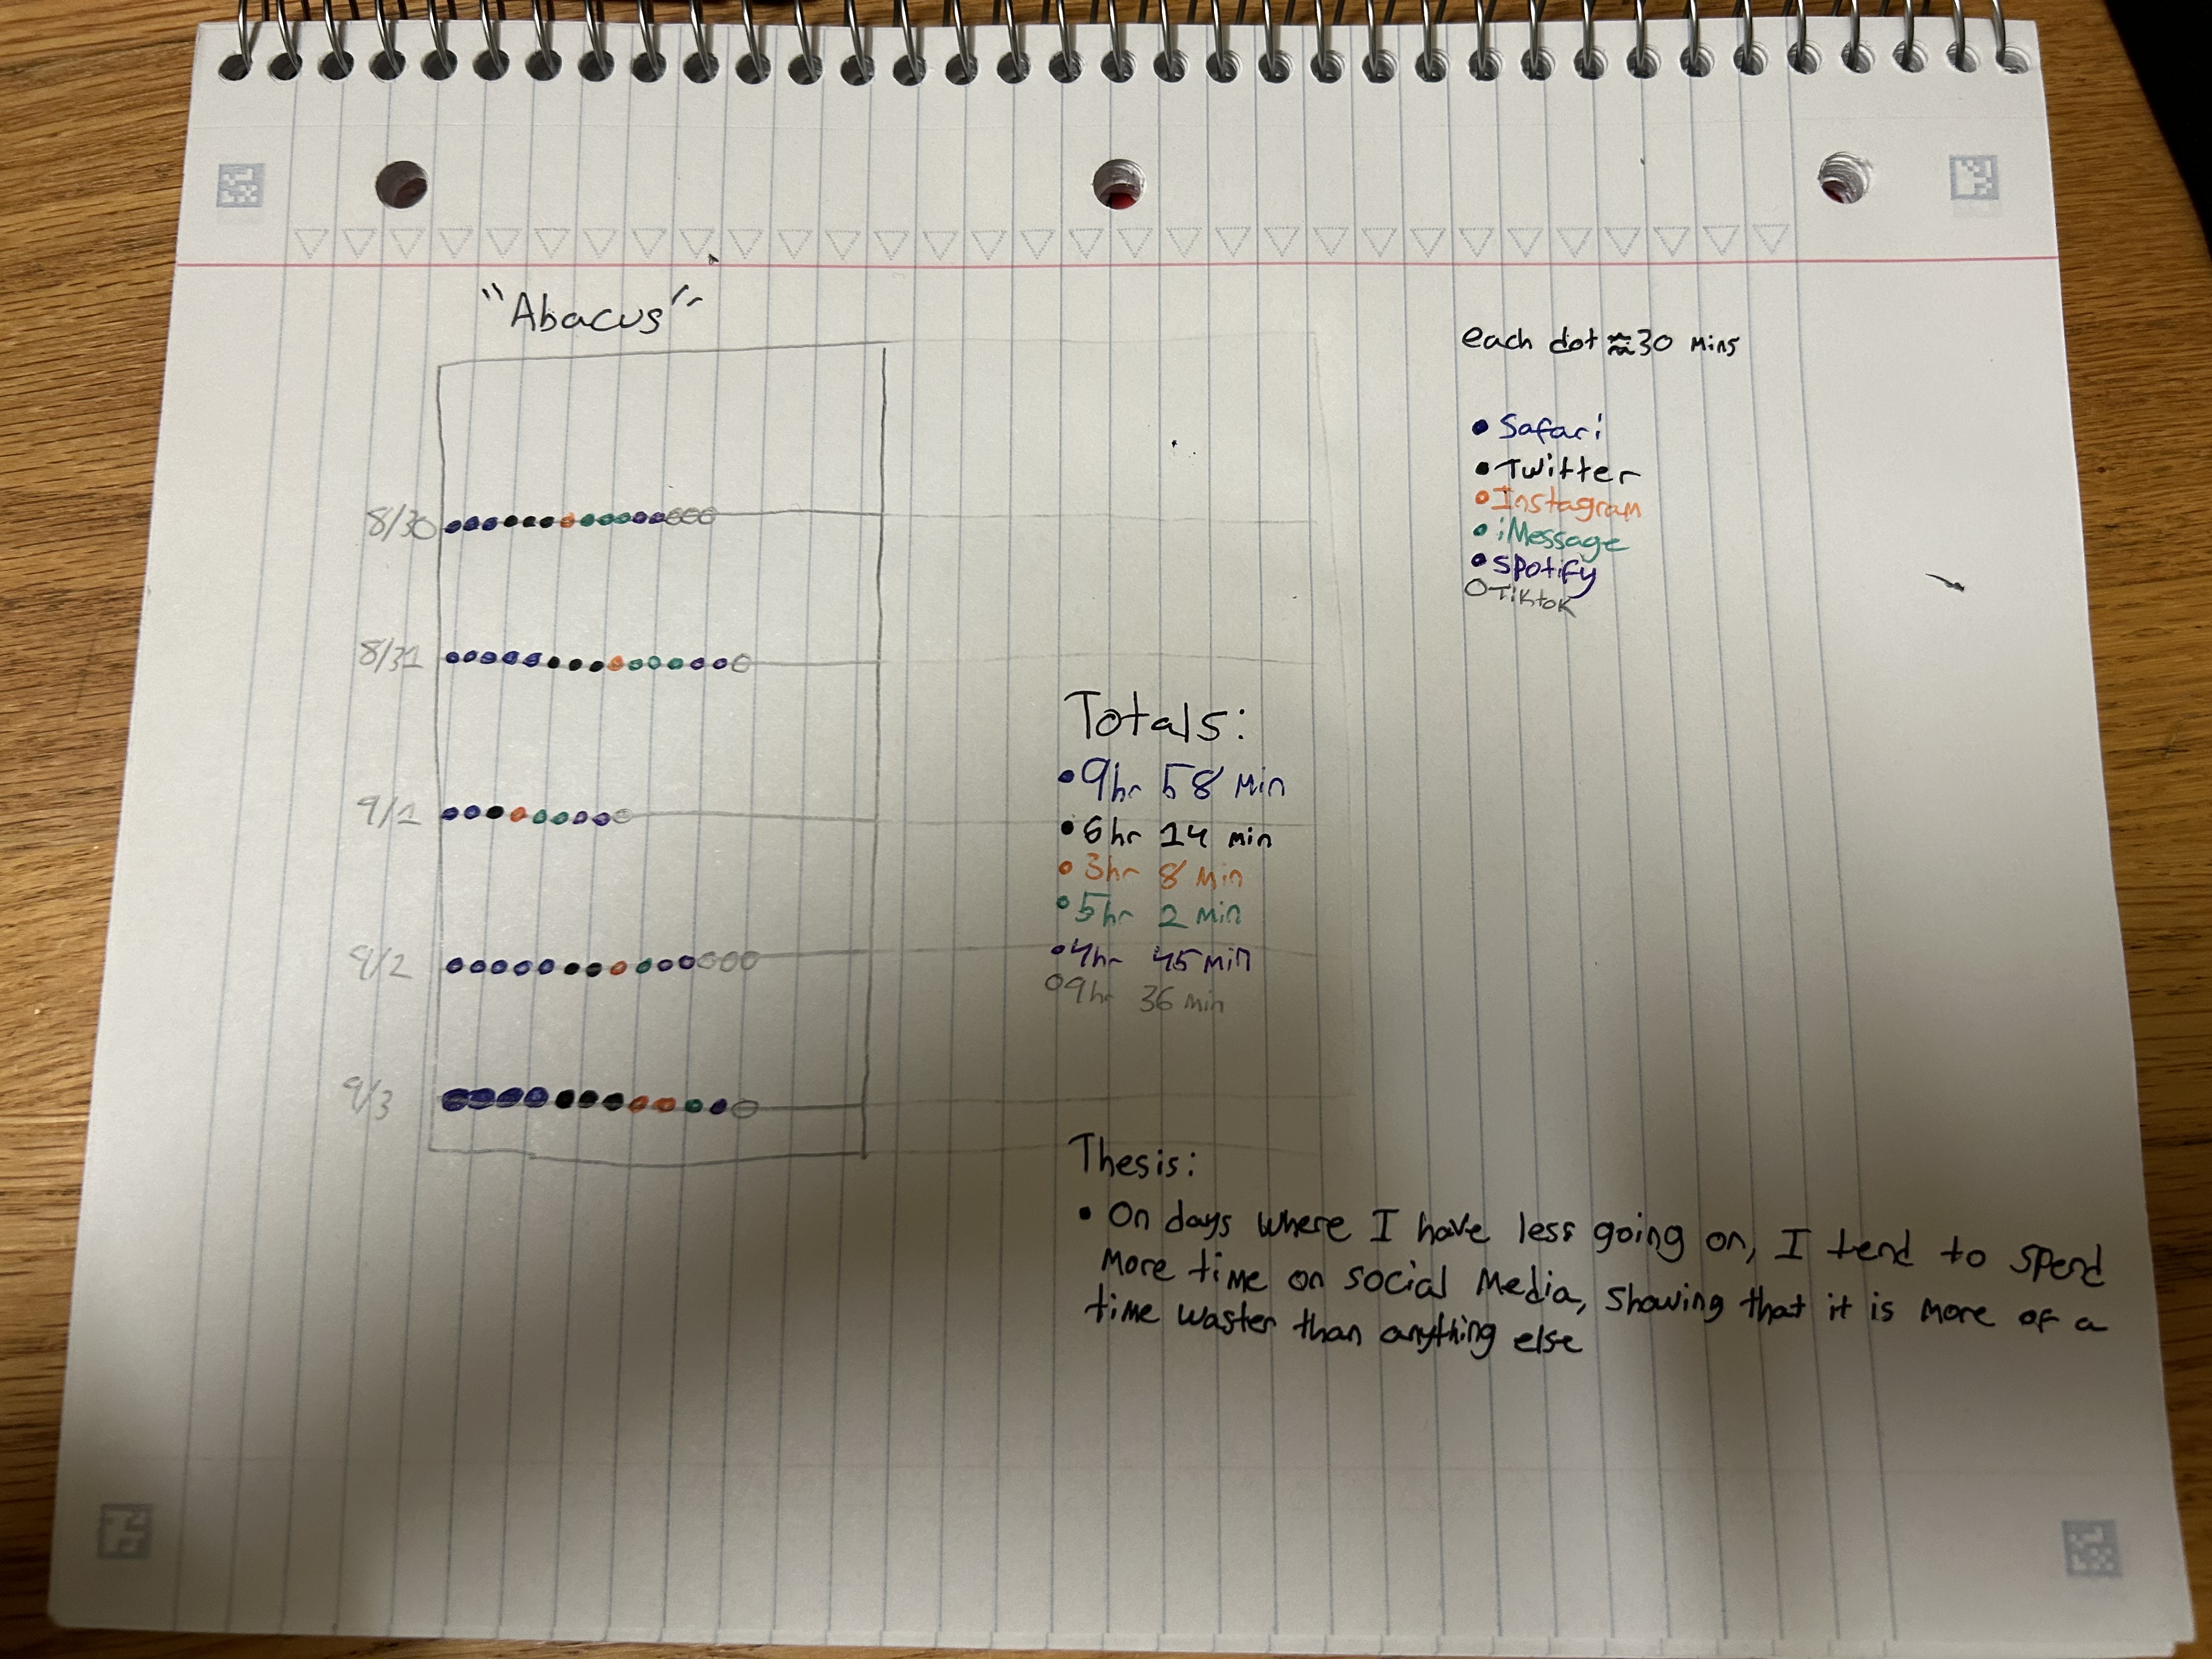 "Abacus"
each dot ≈ 30 mins
Safari
Twitter
Instagram
iMessage
Spotify
Tiktok
8/30
8/31
9/1
9/2
9/3
Totals:
9hr 58 min
6hr 14 min
3hr 8 min
5hr 2 min
4hr 45 min
9hr 36 min
Thesis:
• On days where I have less going on, I tend to spend
more time on social media, showing that it is more of a
time waster than anything else